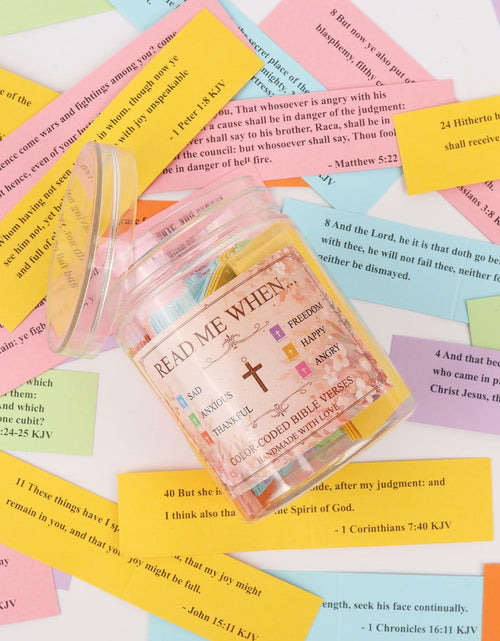 8 But now ye also put o
blasphemy, filthy
ence come wars and fightings among you? come
t hence, even of your
secret place of the
mighty.
e of the
in whom, though now ye
with joy unspeakable
- 1 Peter 1:8 KJV
Whom having not seen
see him not, yet
and full of
you, That whosoever is angry with his
a cause shall be in danger of the judgment:
ever shall say to his brother, Raca, shall be in
the council: but whosoever shall say, Thou fool
be in danger of hell fire.
- Matthew 5:22
24 Hitherto h
shall receive
ssians 3:8 K
8 And the Lord, he it is that doth go be
with thee, he will not fail thee, neither fo
neither be dismayed.
tain: ye figh
READ ME WHEN...
SAD
ANXIOUS
THANKFUL
FREEDOM
HAPPY
ANGRY
COLOR-CODED BIBLE VERSES
HANDMADE WITH LOVE
4 And that bec
who came in p
Christ Jesus, th
which
them:
And which
one cubit?
:24-25 KJV
40 But she is
ide, after my judgment: and
I think also tha
the Spirit of God.
- 1 Corinthians 7:40 KJV
11 These things have I sp
remain in you, and that you
d, that my joy might
joy might be full.
- John 15:11 KJV
ength, seek his face continually.
- 1 Chronicles 16:11 KJV
KJV